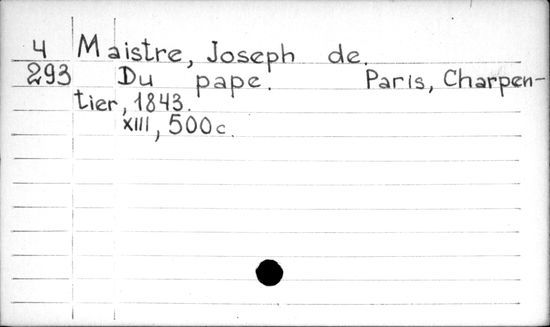 4 Maistre, Joseph de.
293 Du pape. Paris, Charpen-
tier, 1843.
XIII, 500c.